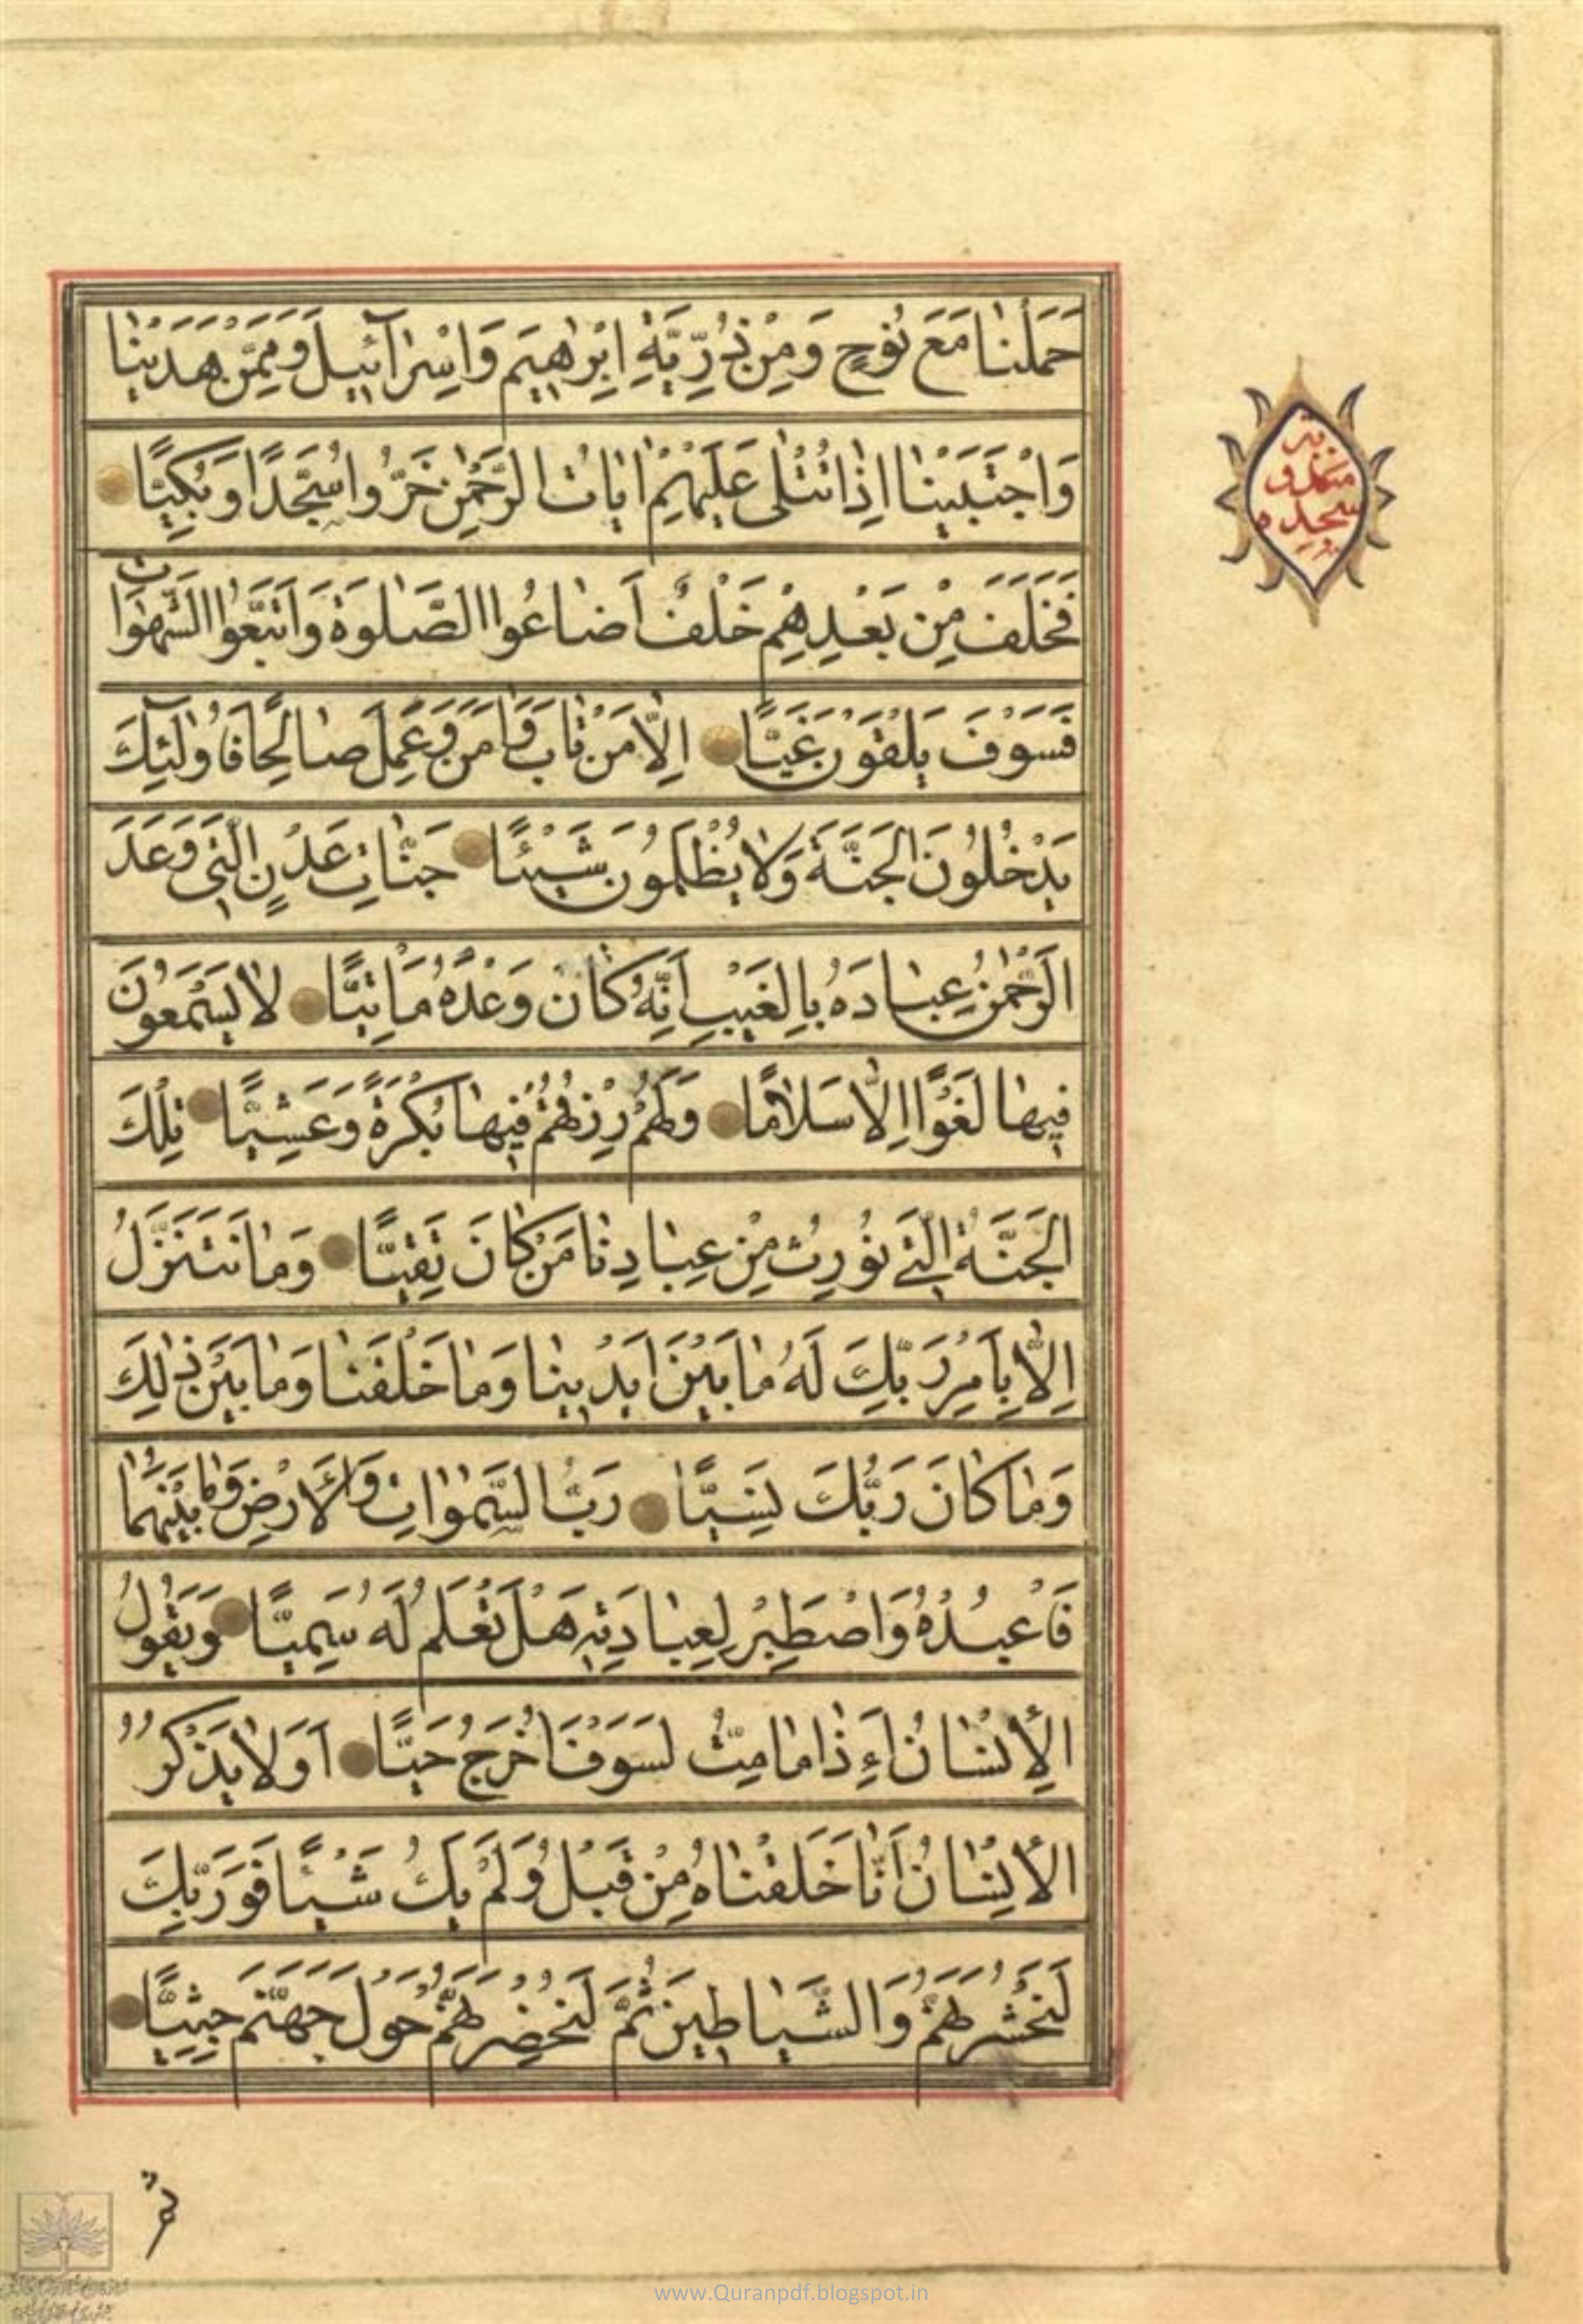 حَمَلْنٰا مَعَ نُوحٍ وَمِنْ ذُرِّيَّةِ اِبْرٰهٖيمَ وَاِسْرٰآئٖيلَ وَمِمَّنْ هَدَيْنٰا
وَاجْتَبَيْنٰا اِذٰا تُتْلٰى عَلَيْهِمْ اٰيٰاتُ الرَّحْمٰنِ خَرُّوا سُجَّدًا وَبُكِيًّا
فَخَلَفَ مِنْ بَعْدِهِمْ خَلْفٌ اَضٰاعُوا الصَّلٰوةَ وَاتَّبَعُوا الشَّهَوٰاتِ
فَسَوْفَ يَلْقَوْنَ غَيًّا اِلّٰا مَنْ تٰابَ وَاٰمَنَ وَعَمِلَ صٰالِحًا فَاُولٰٓئِكَ
يَدْخُلُونَ الْجَنَّةَ وَلٰا يُظْلَمُونَ شَيْئًا جَنّٰاتِ عَدْنٍ الَّتٖي وَعَدَ
الرَّحْمٰنُ عِبٰادَهُ بِالْغَيْبِ اِنَّهُ كٰانَ وَعْدُهُ مَاْتِيًّا لٰا يَسْمَعُونَ
فٖيهٰا لَغْوًا اِلّٰا سَلٰامًا وَلَهُمْ رِزْقُهُمْ فٖيهٰا بُكْرَةً وَعَشِيًّا تِلْكَ
الْجَنَّةُ الَّتٖي نُورِثُ مِنْ عِبٰادِنٰا مَنْ كٰانَ تَقِيًّا وَمٰا نَتَنَزَّلُ
اِلّٰا بِاَمْرِ رَبِّكَ لَهُ مٰا بَيْنَ اَيْدٖينٰا وَمٰا خَلْفَنٰا وَمٰا بَيْنَ ذٰلِكَ
وَمٰا كٰانَ رَبُّكَ نَسِيًّا رَبُّ السَّمٰوٰاتِ وَالْاَرْضِ وَمٰا بَيْنَهُمٰا
فَاعْبُدْهُ وَاصْطَبِرْ لِعِبٰادَتِهٖ هَلْ تَعْلَمُ لَهُ سَمِيًّا وَيَقُولُ
الْاِنْسٰانُ اَءِذٰا مٰا مِتُّ لَسَوْفَ اُخْرَجُ حَيًّا اَوَلٰا يَذْكُرُ
الْاِنْسٰانُ اَنّٰا خَلَقْنٰاهُ مِنْ قَبْلُ وَلَمْ يَكُ شَيْئًا فَوَرَبِّكَ
لَنَحْشُرَنَّهُمْ وَالشَّيٰاطٖينَ ثُمَّ لَنُحْضِرَنَّهُمْ حَوْلَ جَهَنَّمَ جِثِيًّا
سجده
ثم
www.Quranpdf.blogspot.in